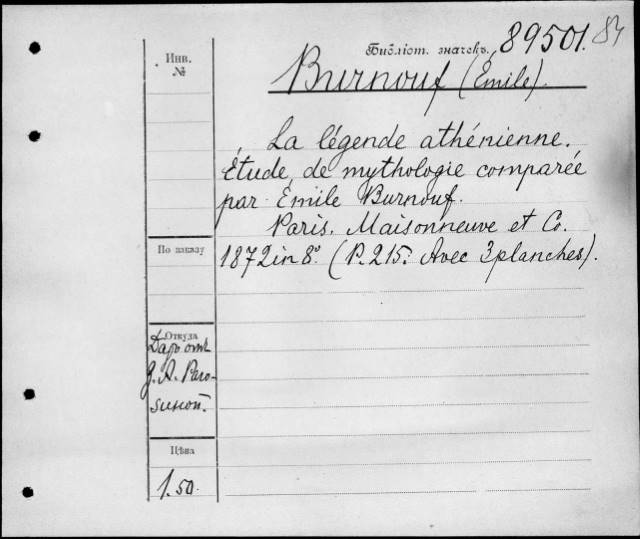 Инв.
№
Библіот. значекъ. 89501. 84
Burnouf (Émile).
La légende athénienne.
Étude de mythologie comparée
par Émile Burnouf.
Paris. Maisonneuve et Co.
1872 in 8° (P. 215. Avec 3 planches).
По заказу
Откуда
Даръ отъ
Цѣна
1.50.